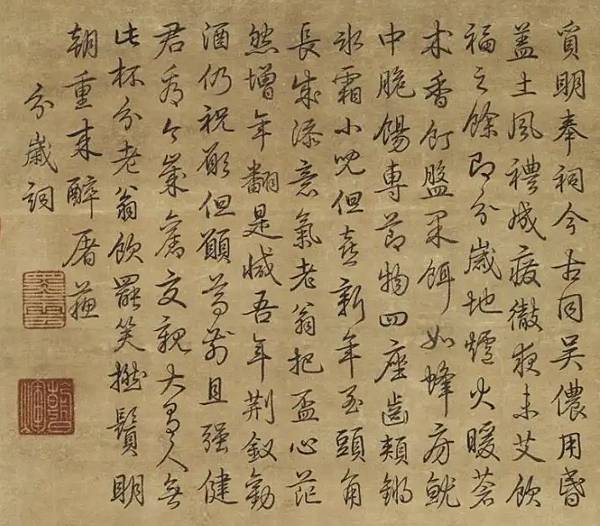 質明奉祠今古同吳儂用昏
蓋土風禮成廢徹夜未艾飲
福之餘即分歲地爐火暖蒼
朮香飣盤果餌如蜂房就
中脆餳專節物四座齒頰鏘
冰霜小兒但喜新年至頭角
長成添意氣老翁把盃心茫
然增年翻是減吾年荊釵勸
酒仍祝願但願尊前且強健
君看今歲舊交親大有人無
此杯分老翁飲罷笑撚鬚明
朝重來醉屠蘇
分歲詞